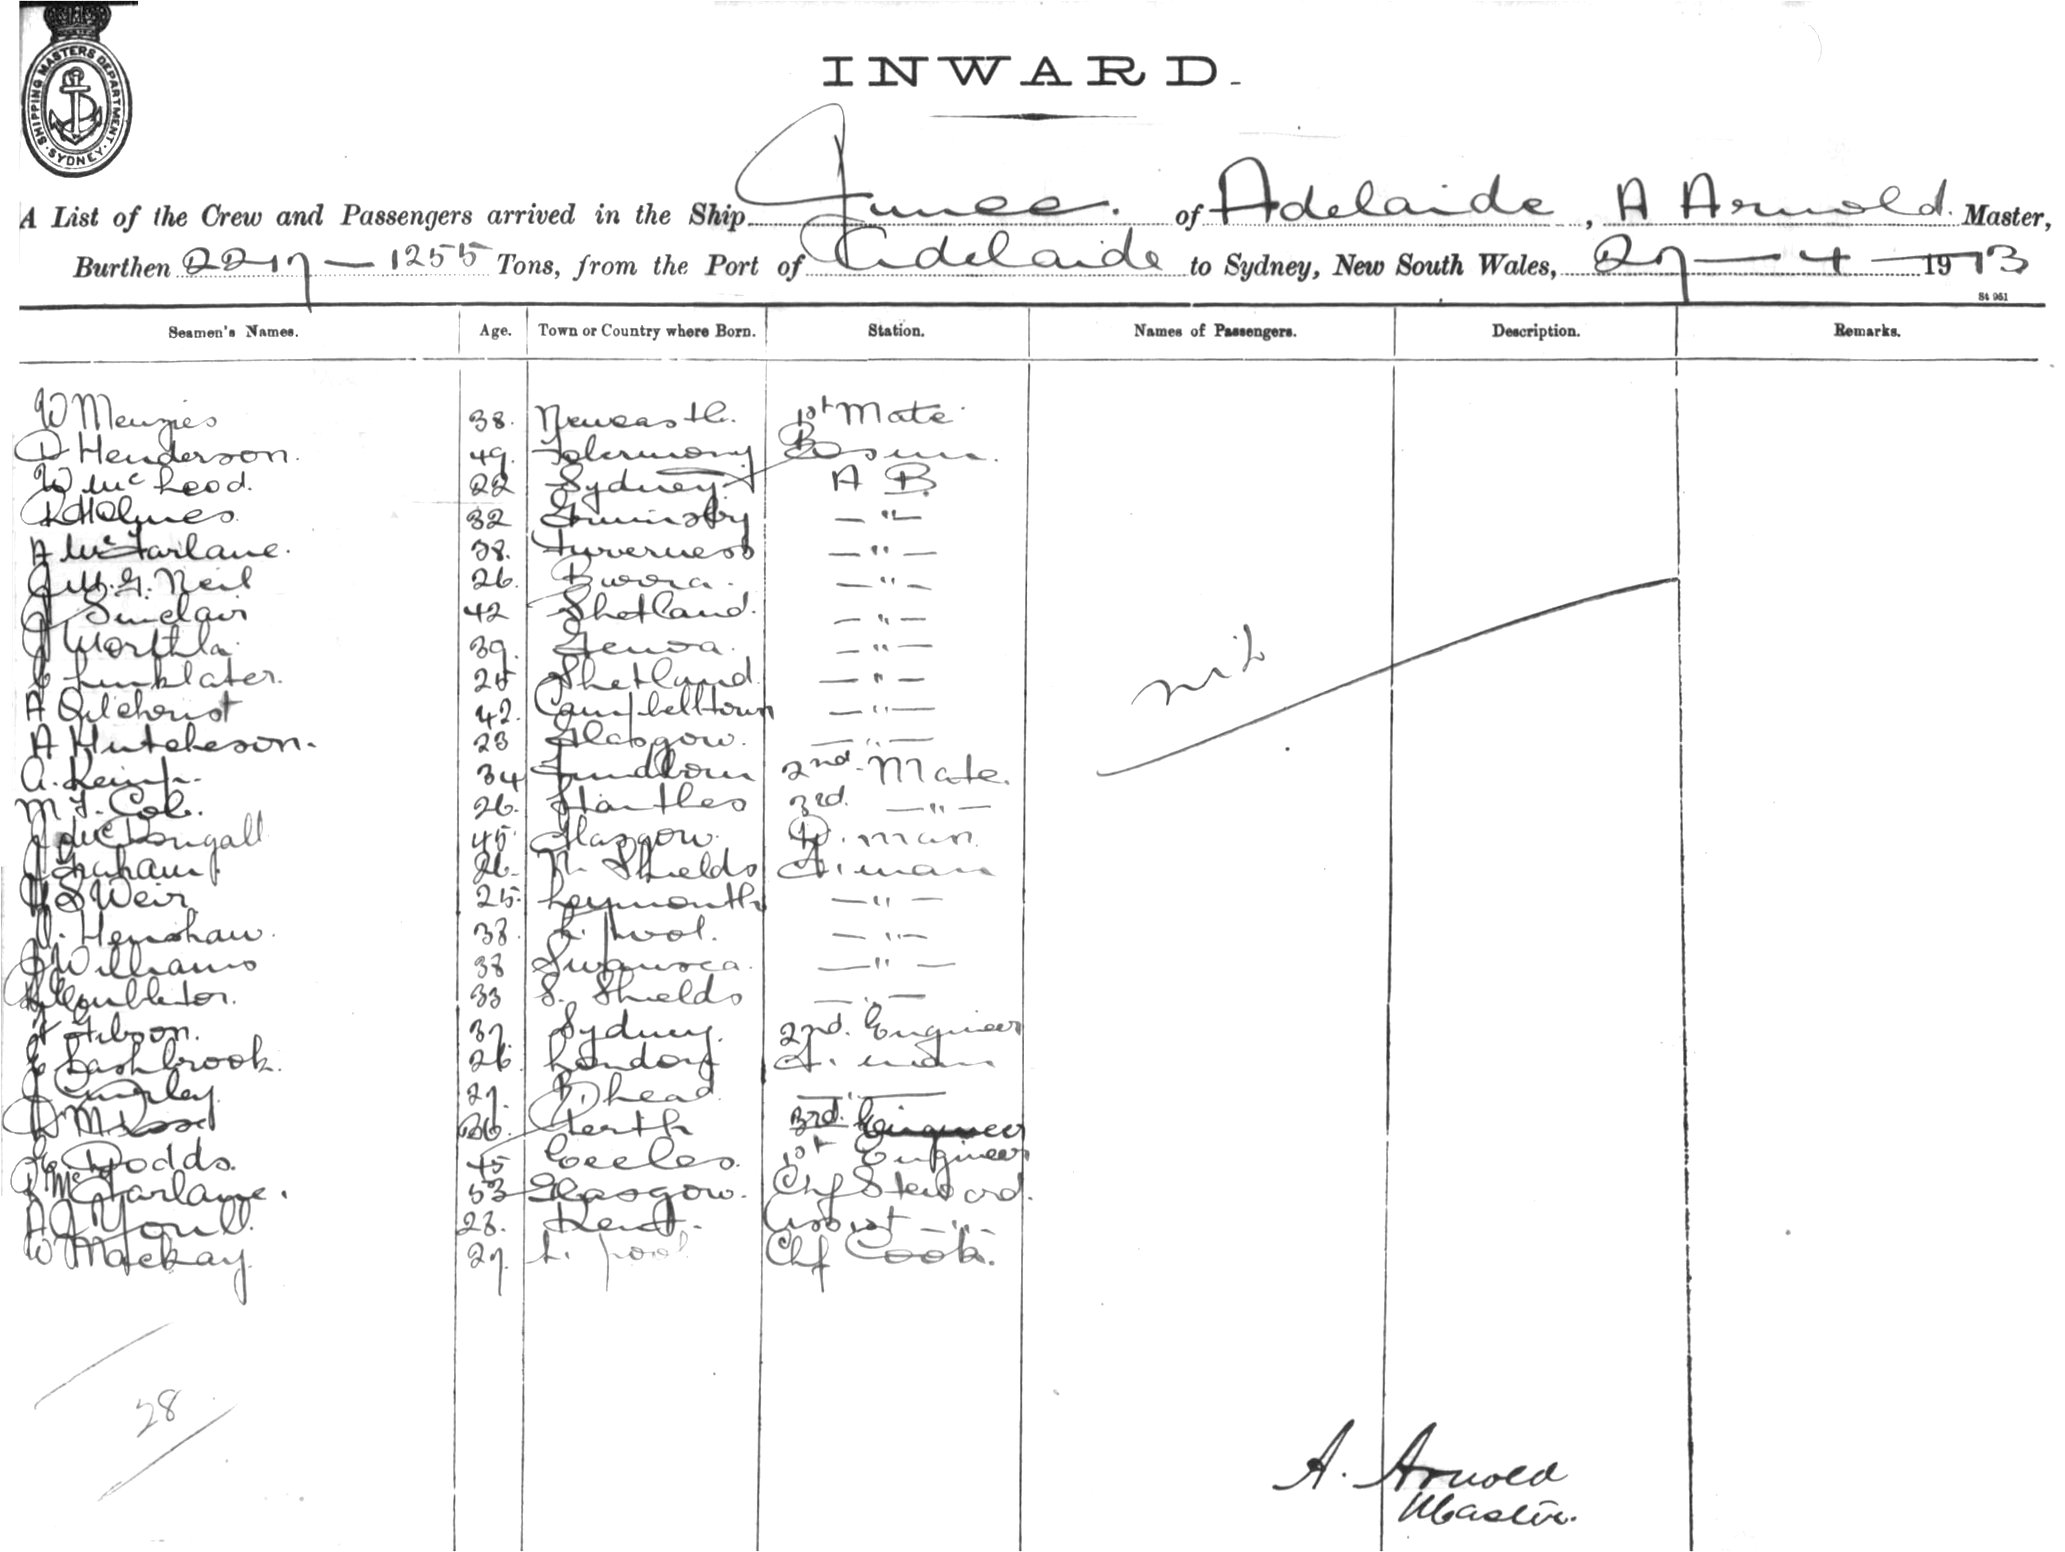 SHIPPING MASTERS DEPARTMENT. SYDNEY.
INWARD.
A List of the Crew and Passengers arrived in the Ship Junee. of Adelaide, A Arnold. Master,
Burthen 2217 — 1255 Tons, from the Port of Adelaide to Sydney, New South Wales, 27 — 4 — 1913
St 961
Seamen's Names. Age. Town or Country where Born. Station. Names of Passengers. Description. Remarks.
W Menzies 38. Newcastle. 1st Mate
D Henderson. 49. Bosun.
W McLeod. 22 Sydney A B.
Holmes 32 Grimsby — " —
A McFarlane. 38. Inverness — " —
Neil 26. — " —
J Sinclair 42 Shetland. — " —
J 39. Genoa. — " —
C Linklater. 24 Shetland. — " —
A Gilchrist 42. Campbelltown — " —
A Hutcheson. 23 Glasgow. — " —
A. Kemp. 34 2nd Mate.
M 26. 3rd. — " —
J McDougall 45 Glasgow. D. man.
J Graham. 26. N. Shields F. man
S Weir 25. — " —
Henshaw. 38. L. pool. — " —
J Williams 38 Swansea. — " —
33 S. Shields — " —
Gibson. 37 Sydney. 2nd. Engineer
E Lashbrook. 26 London F. man
J 27. B. head — " —
D M Ross 26. Perth 3rd. Engineer
Dodds. 45 Eccles. 1st Engineer
McFarlane. 53 Glasgow. Chf Steward.
A J Youll. 28. Kent. Assist — " —
W Mackay 27. L. pool Chf Cook.
nil
28
A. Arnold
Master.